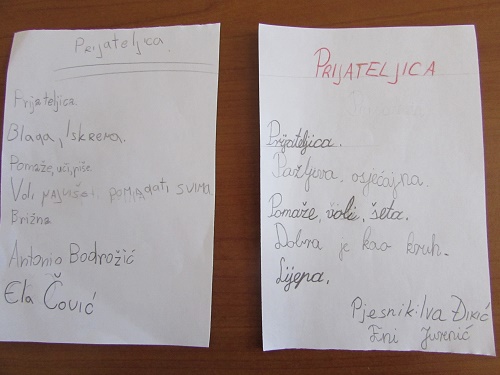 Prijateljica.
Prijateljica
Blaga, Iskrena.
Pomaže, uči, piše
Voli pomagati svima.
Brižna
Antonio Bodrožić
Ela Čović
PRIJATELJICA
Prijateljica.
Pažljiva, osjećajna.
Pomaže, voli, šeta.
Dobra je kao kruh.
Lijepa.
Pjesnik: Iva Đikić
Eni Jurenić